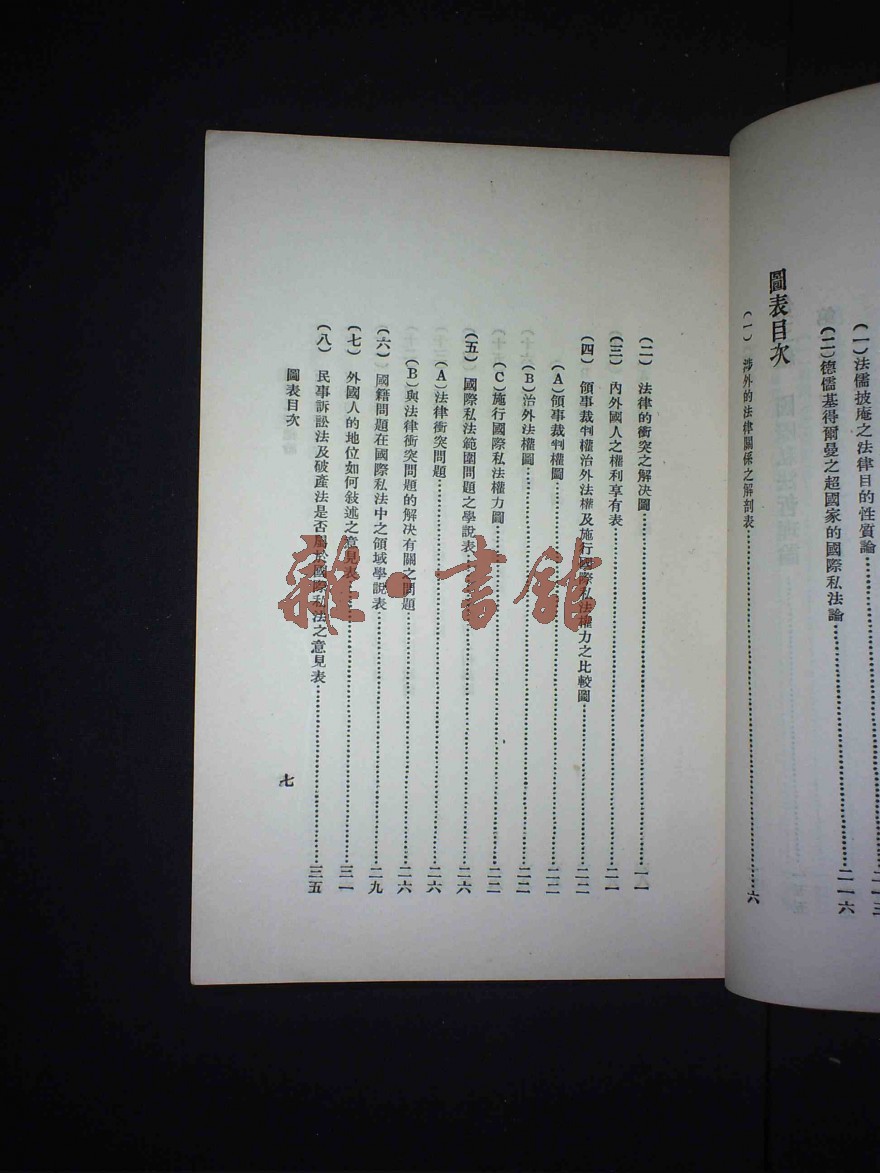 (一)法儒披庵之法律目的性質論………二一三
(二)德儒基得爾曼之超國家的國際私法論………二一六
圖表目次
(一) 涉外的法律關係之解剖表………六
(二) 法律的衝突之解決圖………一八
(三) 內外國人之權利享有表………二一
(四) 領事裁判權治外法權及施行國際私法權力之比較圖………二二
(A)領事裁判權圖………二二
(B)治外法權圖………二二
(C)施行國際私法權力圖………二二
(五) 國際私法範圍問題之學說表………二六
(A)法律衝突問題………二六
(B)與法律衝突問題的解決有關之問題………二六
(六) 國籍問題在國際私法中之領域學說表………二九
(七) 外國人的地位如何敍述之意見表………三一
(八) 民事訴訟法及破產法是否屬於國際私法之意見表………三五
圖表目次
七
雜·書館